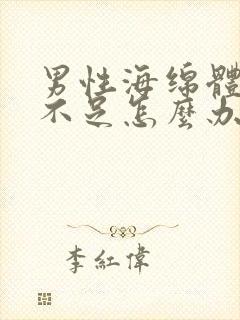 男性海绵體
不足怎麼办
李紅偉